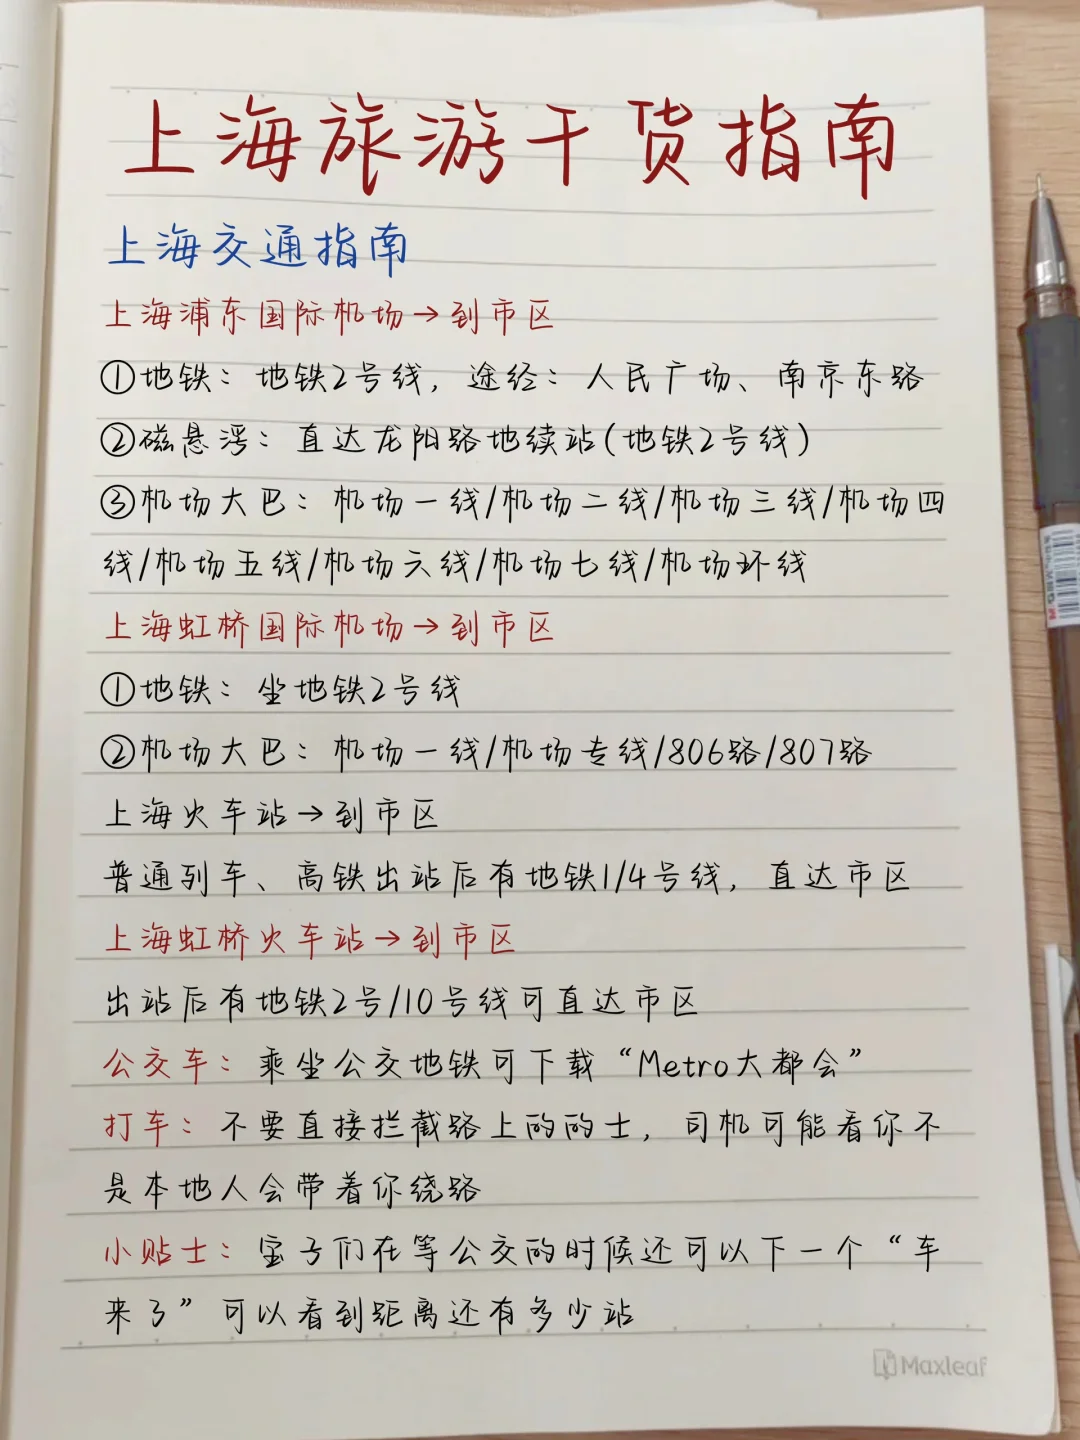 上海旅游干货指南
上海交通指南
上海浦东国际机场→到市区
①地铁：地铁2号线，途经：人民广场、南京东路
②磁悬浮：直达龙阳路地续站(地铁2号线)
③机场大巴：机场一线/机场二线/机场三线/机场四
线/机场五线/机场六线/机场七线/机场环线
上海虹桥国际机场→到市区
①地铁：坐地铁2号线
②机场大巴：机场一线/机场专线/806路/807路
上海火车站→到市区
普通列车、高铁出站后有地铁1/4号线，直达市区
上海虹桥火车站→到市区
出站后有地铁2号/10号线可直达市区
公交车：乘坐公交地铁可下载“Metro大都会”
打车：不要直接拦截路上的的士，司机可能看你不
是本地人会带着你绕路
小贴士：宝子们在等公交的时候还可以下一个“车
来了”可以看到距离还有多少站
Maxleaf